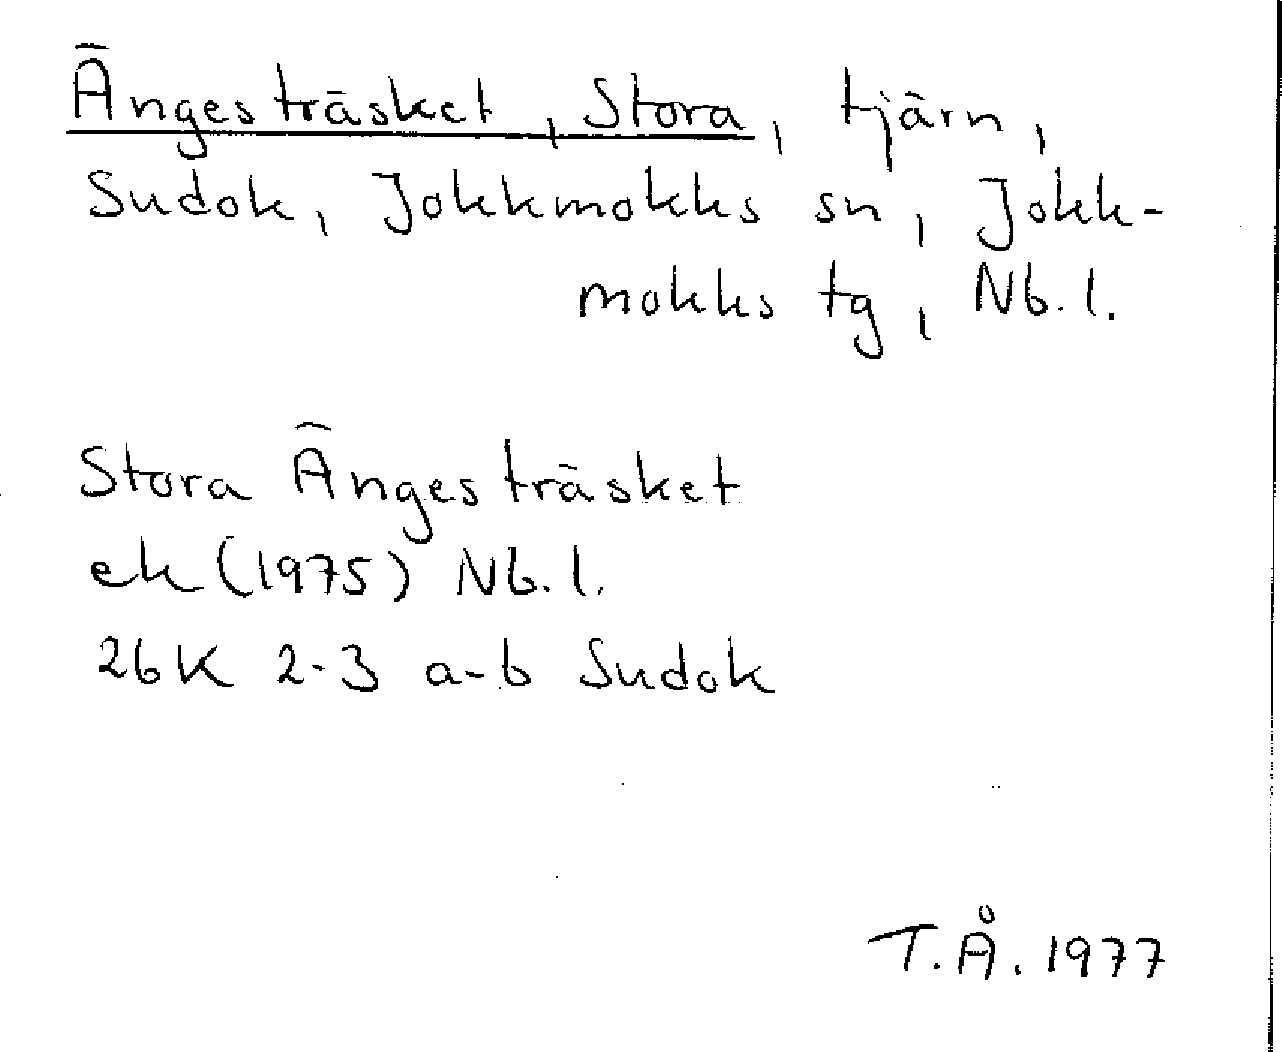 Ängesträsket, Stora, tjärn,
Sudok, Jokkmokks sn, Jokk-
mokks tg, Nb.l.
Stora Ängesträsket
ek (1975) Nb.l.
26K 2-3 a-b Sudok
T.Å. 1977